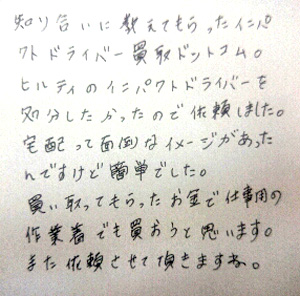 知り合いに教えてもらったインパ
クトドライバー買取ドットコム。
ヒルティのインパクトドライバーを
処分したかったので依頼しました。
宅配って面倒なイメージがあった
んですけど簡単でした。
買い取ってもらったお金で仕事用の
作業着でも買おうと思います。
また依頼させて頂きますね。